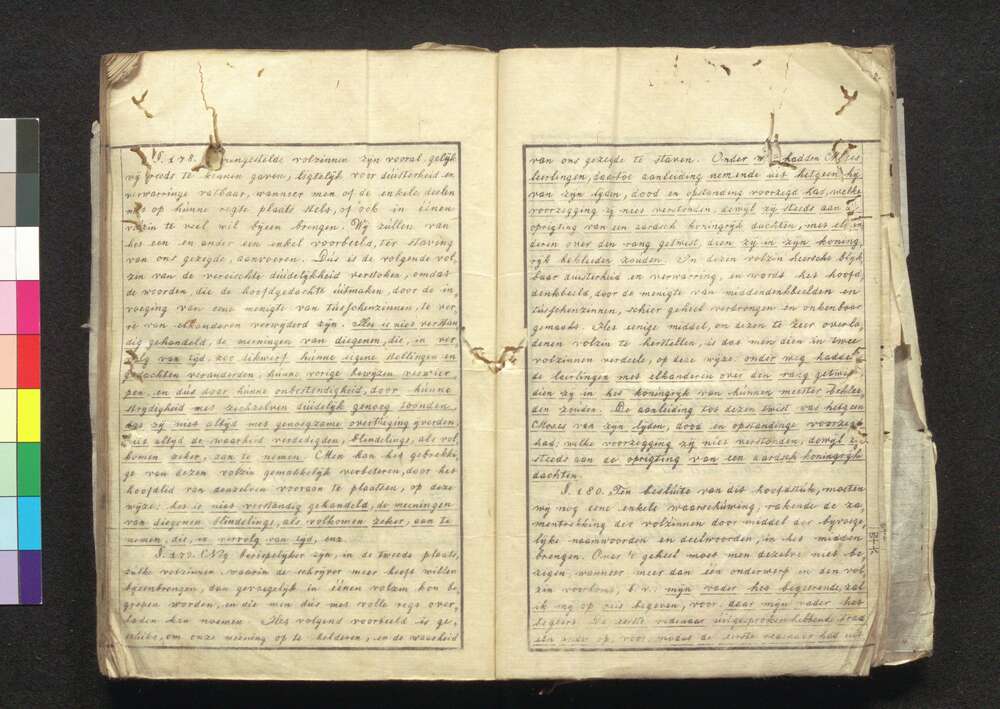 §. 178. zamengestelde volzinnen zyn vooral, gelyk
wy reeds te kennen gaven, ligtelyk voor duisterheid en
verwarringe vatbaar, wanneer men of de enkele deelen
niet op hunne regte plaats stelt, of ook in éénen
volzin te veel wil byeen brengen. Wy zullen van
het een en ander een enkel voorbeeld, ter staving
van ons gezegde, aanvoeren. Dus is de volgende vol
zin van de vereischte duidelykheid verstoken, omdat
de woorden, die de hoofdgedachte uitmaken, door de in,
voeging van eene menigte van tusschenzinnen, te ver,
re van elkanderen verwyderd zyn. Het is niet verstan
dig gehandeld, de meeningen van diegenen, die, in ver
volg van tyd, zoo dikwerf hunne eigene stellingen en
gedachten veranderden, hunne vorige bewyzen verwier,
pen, en dus door hunne onbestendigheid, door hunne
strydigheid met zichzelven duidelyk genoeg toonden,
dat zy met altyd met genoegzame overtuiging spreken,
niet altyd de waarheid verdedigden, blindelings, als vol
komen zeker, aan te nemen. Men kan het gebrekki,
ge van dezen volzin gemakkelyk verbeteren, door het
hoofdlid van denzelven vooraan te plaatsen, op deze
wyze: het is niet verstandig gehandeld, de meeningen
van diegenen blindelings, als volkomen zeker, aan te
nemen, die, in vervolg van tyd, enz.
§. 179. Nog berispelyker zyn, in de tweede plaats,
zulke volzinnen, waarin de schryver meer heeft willen
byeenbrengen, dan gevoegelyk in éénen volzin kon be
grepen worden, en die men dus met volle regt over,
laden kan noemen. Het volgend voorbeeld is ge,
schikt, om onze meening op te helderen, en de waarheid
van ons gezegde te staven. Onder weg hadden Mozes
leerlingen, daartoe aanleiding nemende uit hetgeen hy
van zyn lyden, dood en opstanding voorzegd had, welke
voorzegging zy niet verstonden, dewyl zy steeds aan de
oprigting van een aardsch koningryk dachten, met elkan
deren over den rang getwist, dien zy in zyn koning,
ryk bekleeden zouden. In dezen volzin heerscht blyk
baar duisterheid en verwarring, en wordt het hoofd
denkbeeld, door de menigte van middendenkbeelden en
tusschenzinnen, schier geheel verdrongen en onkenbaar
gemaakt. Het eenige middel, om dezen te zeer overla,
denen volzin te herstellen, is dat men dien in twee
volzinnen verdeele, op deze wyze: onder weg hadden
de leerlingen met elkanderen over den rang getwist,
dien zy in het koningryk van hunnen meester beklee,
den zouden. De aanleiding tot dezen twist was hetgeen
Mozes van zyn lyden, dood en opstandinge voorzegd
had: welke voorzegging zy niet verstonden, dewyl zy
steeds aan de oprigting van een aardsch koningryk
dachten.
§. 180. Ten besluite van dit hoofdstuk, moeten
wy nog eene enkele waarschuwing, rakende de za
mentrekking der volzinnen door middel der byvoege,
lyke naamwoorden en deelwoorden, in het midden
brengen. Over 't geheel moet men dezelve niet be
zigen, wanneer meer dan één onderwerp in den vol,
zin voorkomt, b.v.: myn vader het begeerende, zal
ik my op reis begeven, voor: daar myn vader het
begeert. De eerste redenaar uitgesproken hebbende trad
een ander op, voor: nadat de eerste redenaar had uit